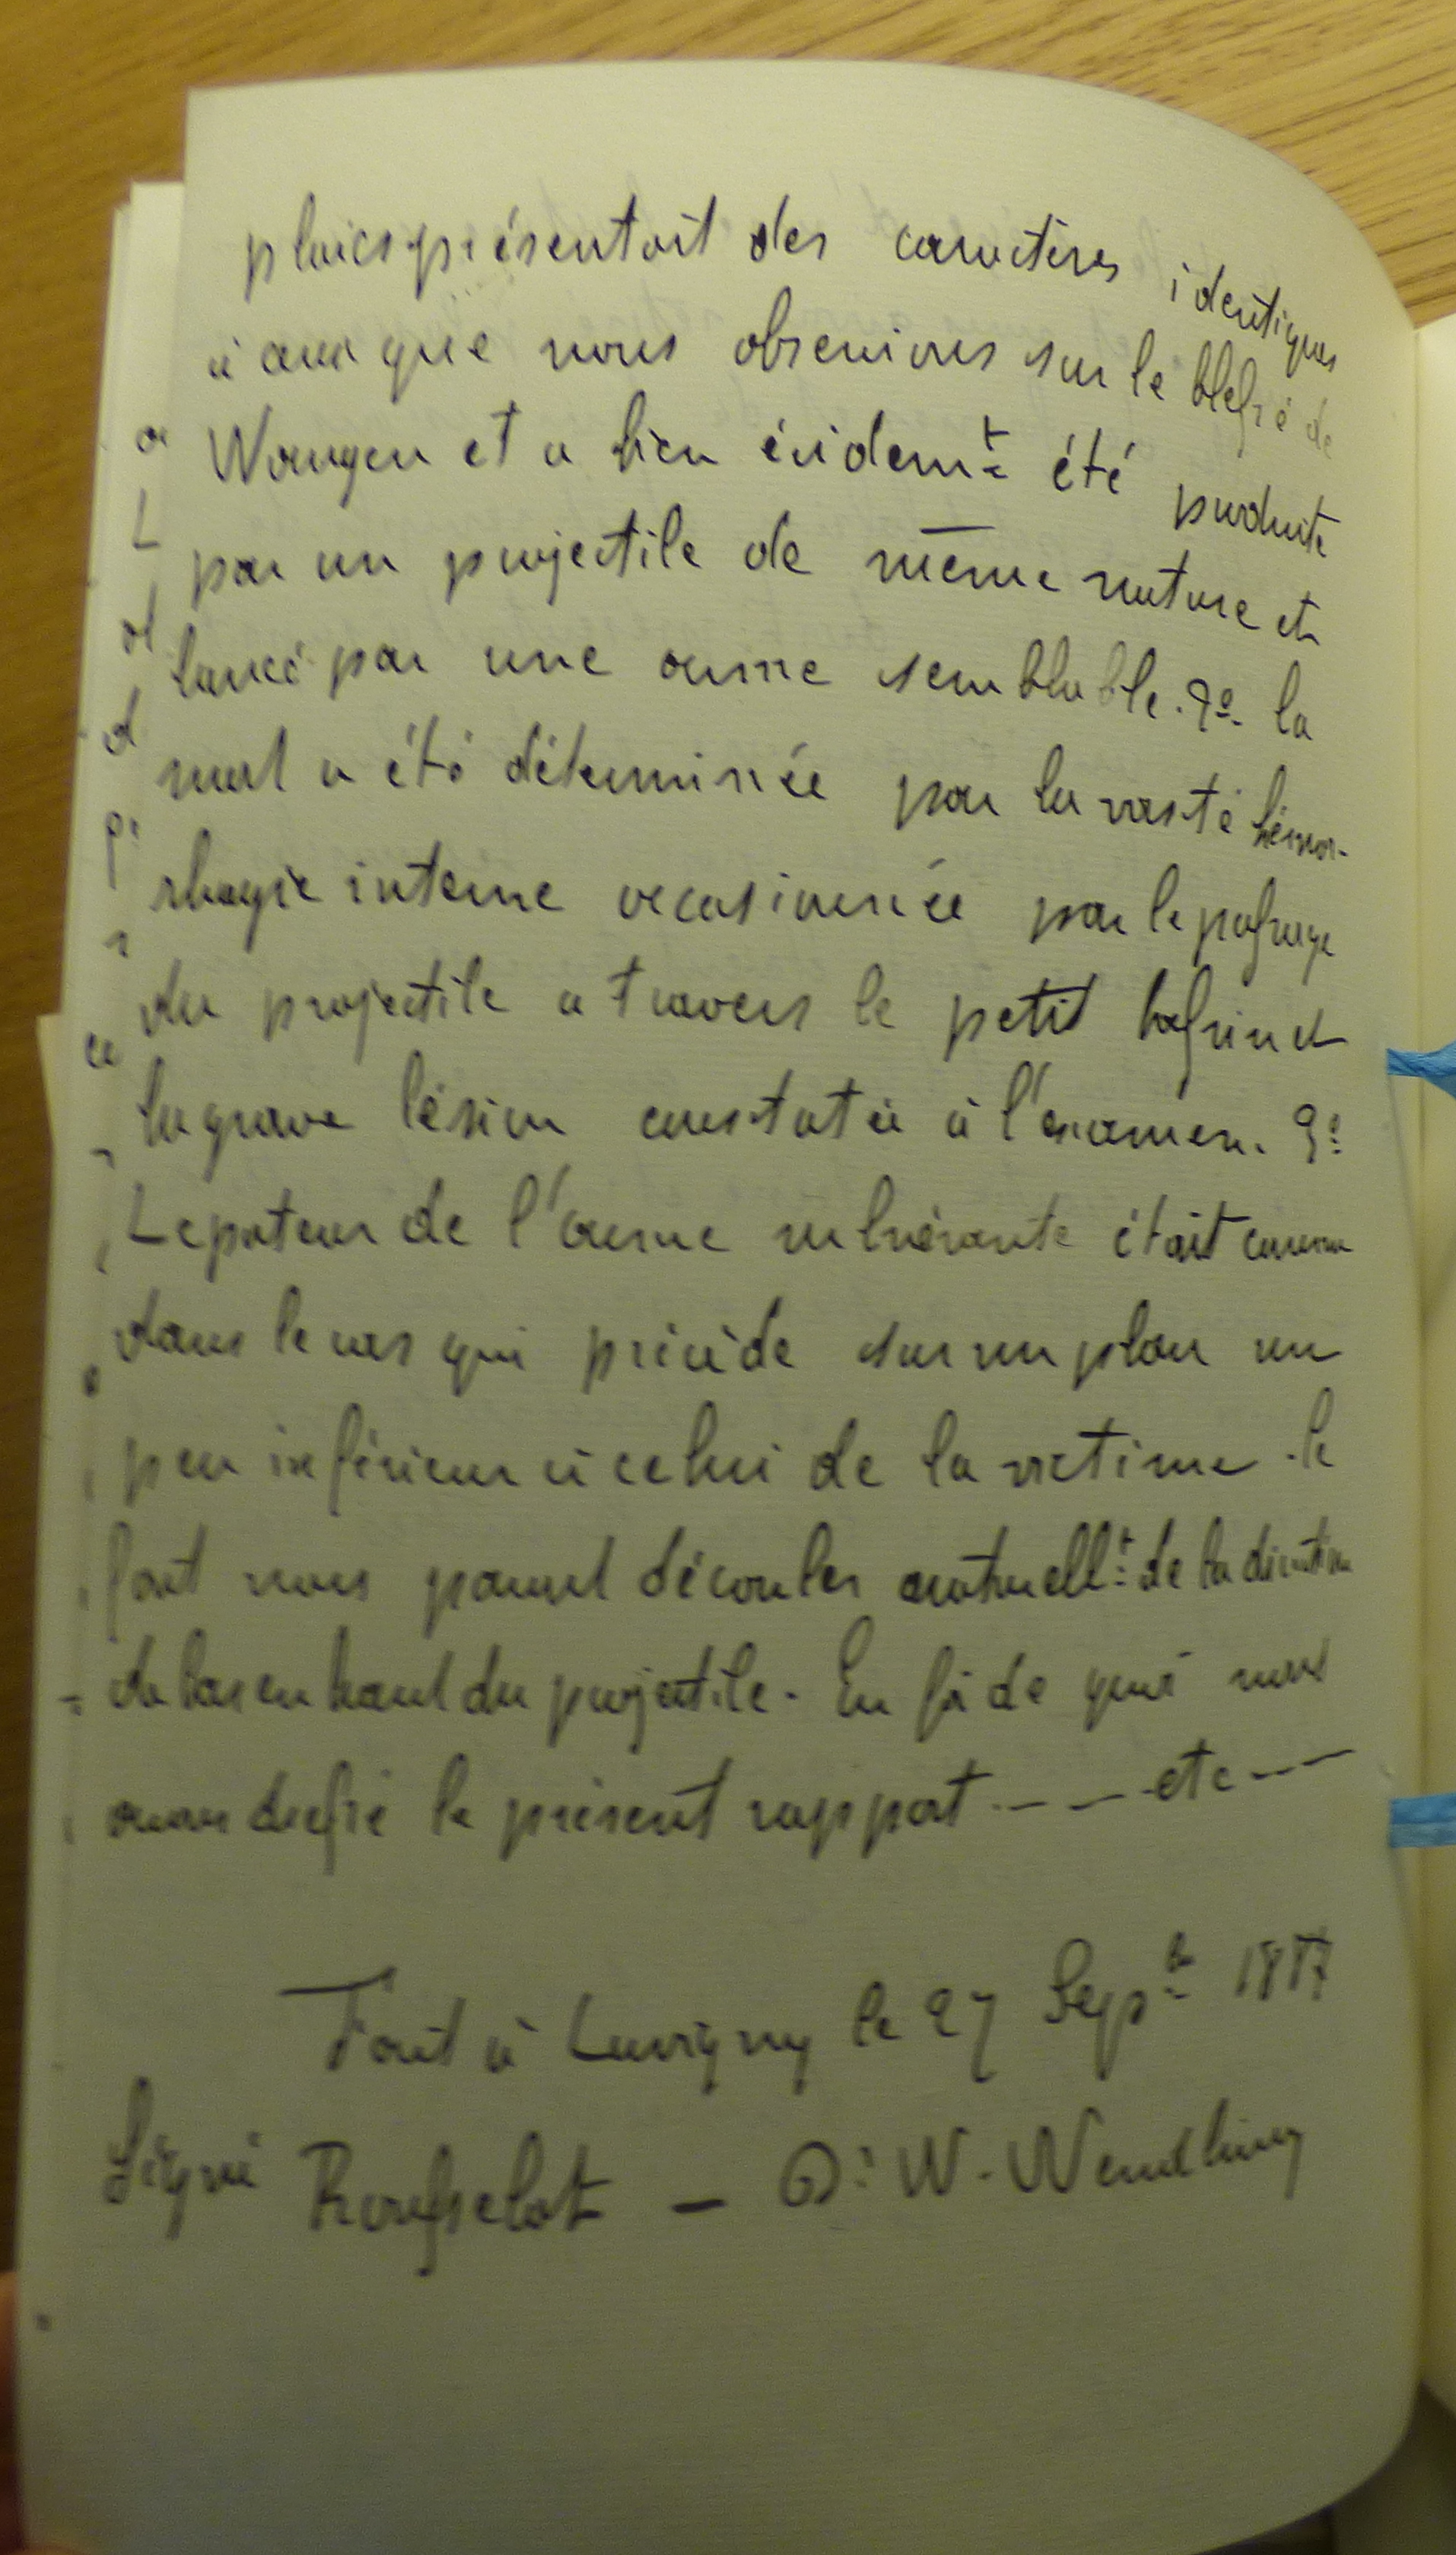 plaies présentait des caractères identiques
à ceux que nous observions sur le blessé de
Wangen et a bien évidemt été produite
par un projectile de même nature et
lancé par une arme semblable. 2º la
mort a été déterminée par la vaste hémor-
rhagie interne occasionnée par le passage
du projectile a travers le petit bassin et
la grave lésion constatée à l'examen. 3º
Le porteur de l'arme vulnérante était comme
dans le cas qui précède sur un plan un
peu inférieur à celui de la victime. le
fait nous parait découler naturellt de la direction
de bas en haut du projectile. En foi de quoi nous
avons dressé le présent rapport --- etc --
Fait à Luvigny le 27 Sepbre 1887
Signé Rousselot — Dr W. Wendling